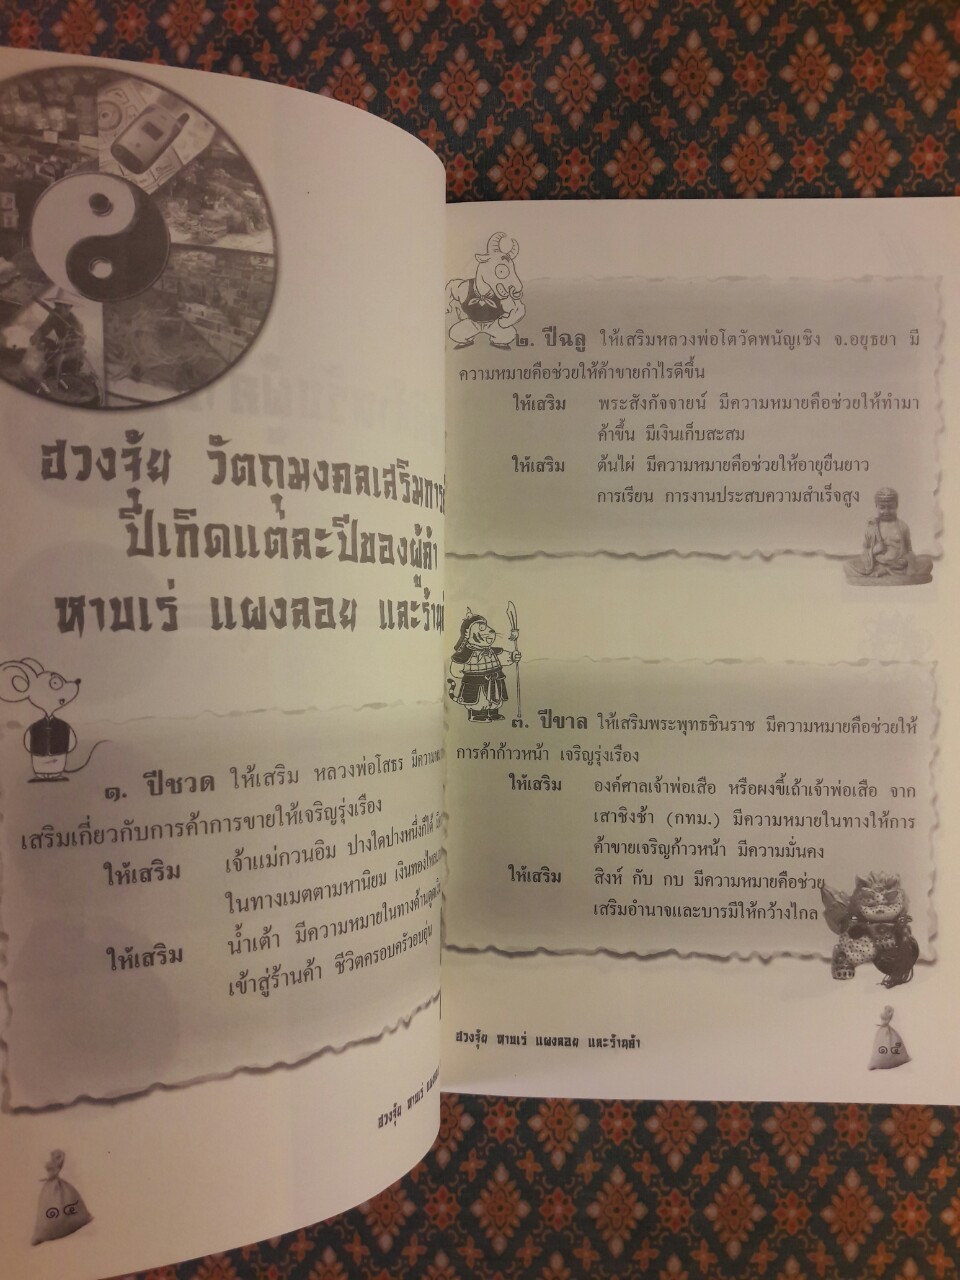 ฮวงจุ้ย วัตถุมงคลเสริมการ
ปีเกิดแต่ละปีของผู้ค้า
หาบเร่ แผงลอย และร้าน
๑. ปีชวด ให้เสริม หลวงพ่อโสธร มีความ
เสริมเกี่ยวกับการค้าการขายให้เจริญรุ่งเรือง
ให้เสริม เจ้าแม่กวนอิม ปางใดปางหนึ่งก็ได้
ในทางเมตตามหานิยม เงินทองไหล
ให้เสริม น้ำเต้า มีความหมายในทางด้านดูด
เข้าสู่ร้านค้า ชีวิตครอบครัวอบอุ่น
ฮวงจุ้ย หาบเร่
๑๔
๒. ปีฉลู ให้เสริมหลวงพ่อโตวัดพนัญเชิง จ.อยุธยา มี
ความหมายคือช่วยให้ค้าขายกำไรดีขึ้น
ให้เสริม พระสังกัจจายน์ มีความหมายคือช่วยให้ทำมา
ค้าขึ้น มีเงินเก็บสะสม
ให้เสริม ต้นไผ่ มีความหมายคือช่วยให้อายุยืนยาว
การเรียน การงานประสบความสำเร็จสูง
๓. ปีขาล ให้เสริมพระพุทธชินราช มีความหมายคือช่วยให้
การค้าก้าวหน้า เจริญรุ่งเรือง
ให้เสริม องค์ศาลเจ้าพ่อเสือ หรือผงขี้เถ้าเจ้าพ่อเสือ จาก
เสาชิงช้า (กทม.) มีความหมายในทางให้การ
ค้าขายเจริญก้าวหน้า มีความมั่นคง
ให้เสริม สิงห์ กับ กบ มีความหมายคือช่วย
เสริมอำนาจและบารมีให้กว้างไกล
ฮวงจุ้ย หาบเร่ แผงลอย และร้านค้า
๑๕